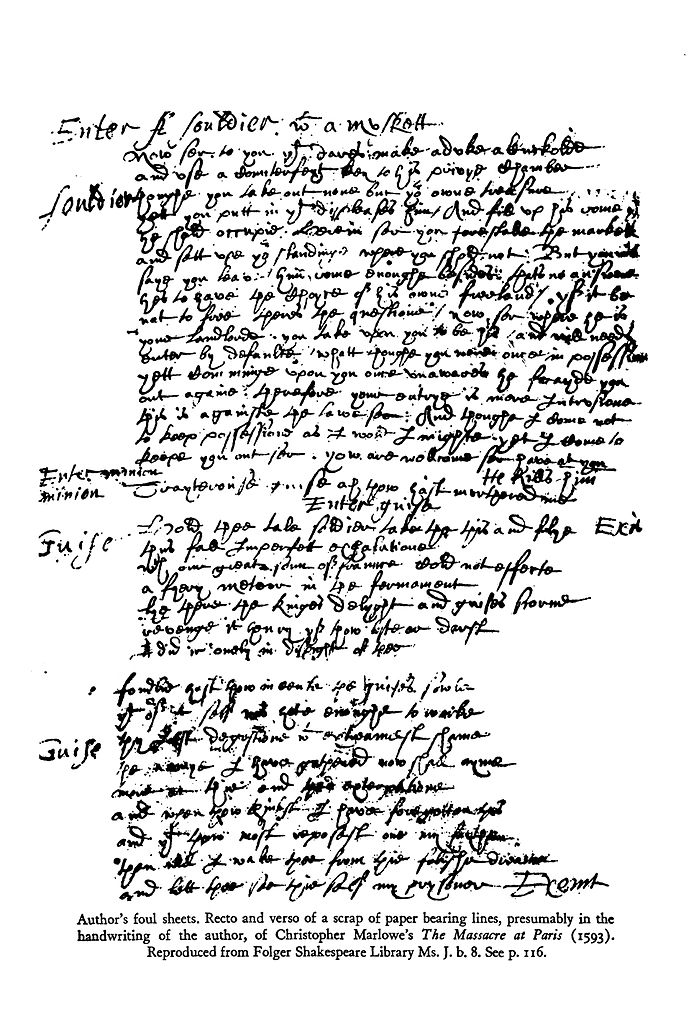 Enter A souldier wt a muskett
Now ser to you yt dares make a duke a Cuckolde
and use a Counterfeyt key to his privye Chamber
souldier thoughe you take out none but yor owne treasure
yett you putt in yt displeases him / And fill up his rome yt
he shold occupie. Herein ser you forestalle the markett
and sett upe yor standinge where you shold not: But you will
saye you leave him rome enoughe besides: thats no answere
hes to have the Choyce of his owne freeland / yf it be
not to free theres the questione / now ser where he is
your landlorde. you take upon you to be his / and will needs
enter by defaulte, whatt thoughe you were once in possession
yett Comminge upon you once unawares he frayde you
out againe. therefore your entrye is mere Intrusione
this is againste the lawe ser. And thoughe I Come not
to keep possessione as I wold I mighte yet I Come to
keepe you out ser. yow are wellcome ser have at you
Enter minion He Kills him
minion Trayterouse guise ah thow hast murthered me
Enter guise
Guise Hold thee tale soldier take the this and flye Exit
thus fall Imperfett exhalatione
wch our great sonn of fraunce Cold not effecte
a fyery meteor in the fermament
lye there the Kinges delyght and guises scorne
revenge it henry yf thow liste or darst
I did it onely in dispight of thee
fondlie hast thow incenste the guises sowle
yt of it self was hote enoughe to worke
Guise thy Just degestione wt extreamest shame
the armye I have gathered now shall ayme
more at thie end then exterpatione
and when thow thinkst I have foregotten this
and yt thow most reposest one my faythe
than will I wake thee from thie folishe dreame
and lett thee see thie self my prysoner Exeunt
Author's foul sheets. Recto and verso of a scrap of paper bearing lines, presumably in the
handwriting of the author, of Christopher Marlowe's The Massacre at Paris (1593).
Reproduced from Folger Shakespeare Library Ms. J. b. 8. See p. 116.